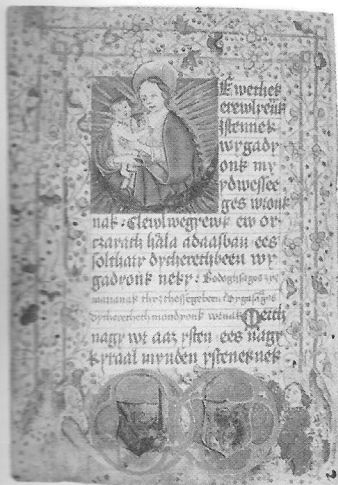 Ewethek
erewlwenk
istennek
wygady
onk my
ydwessee
ges wronk
nak : Elewl wegyewk ew or
czayath hala adaasban ees
solthar dycherethben wy
gadyonk neky : Bodoghsagos zyz
marianak thyztessegeben wygasagos
dycherethet mondyonk wrnak Merth
nagy wr aaz ysten ees nagy
kyraal mynden ysteneknek